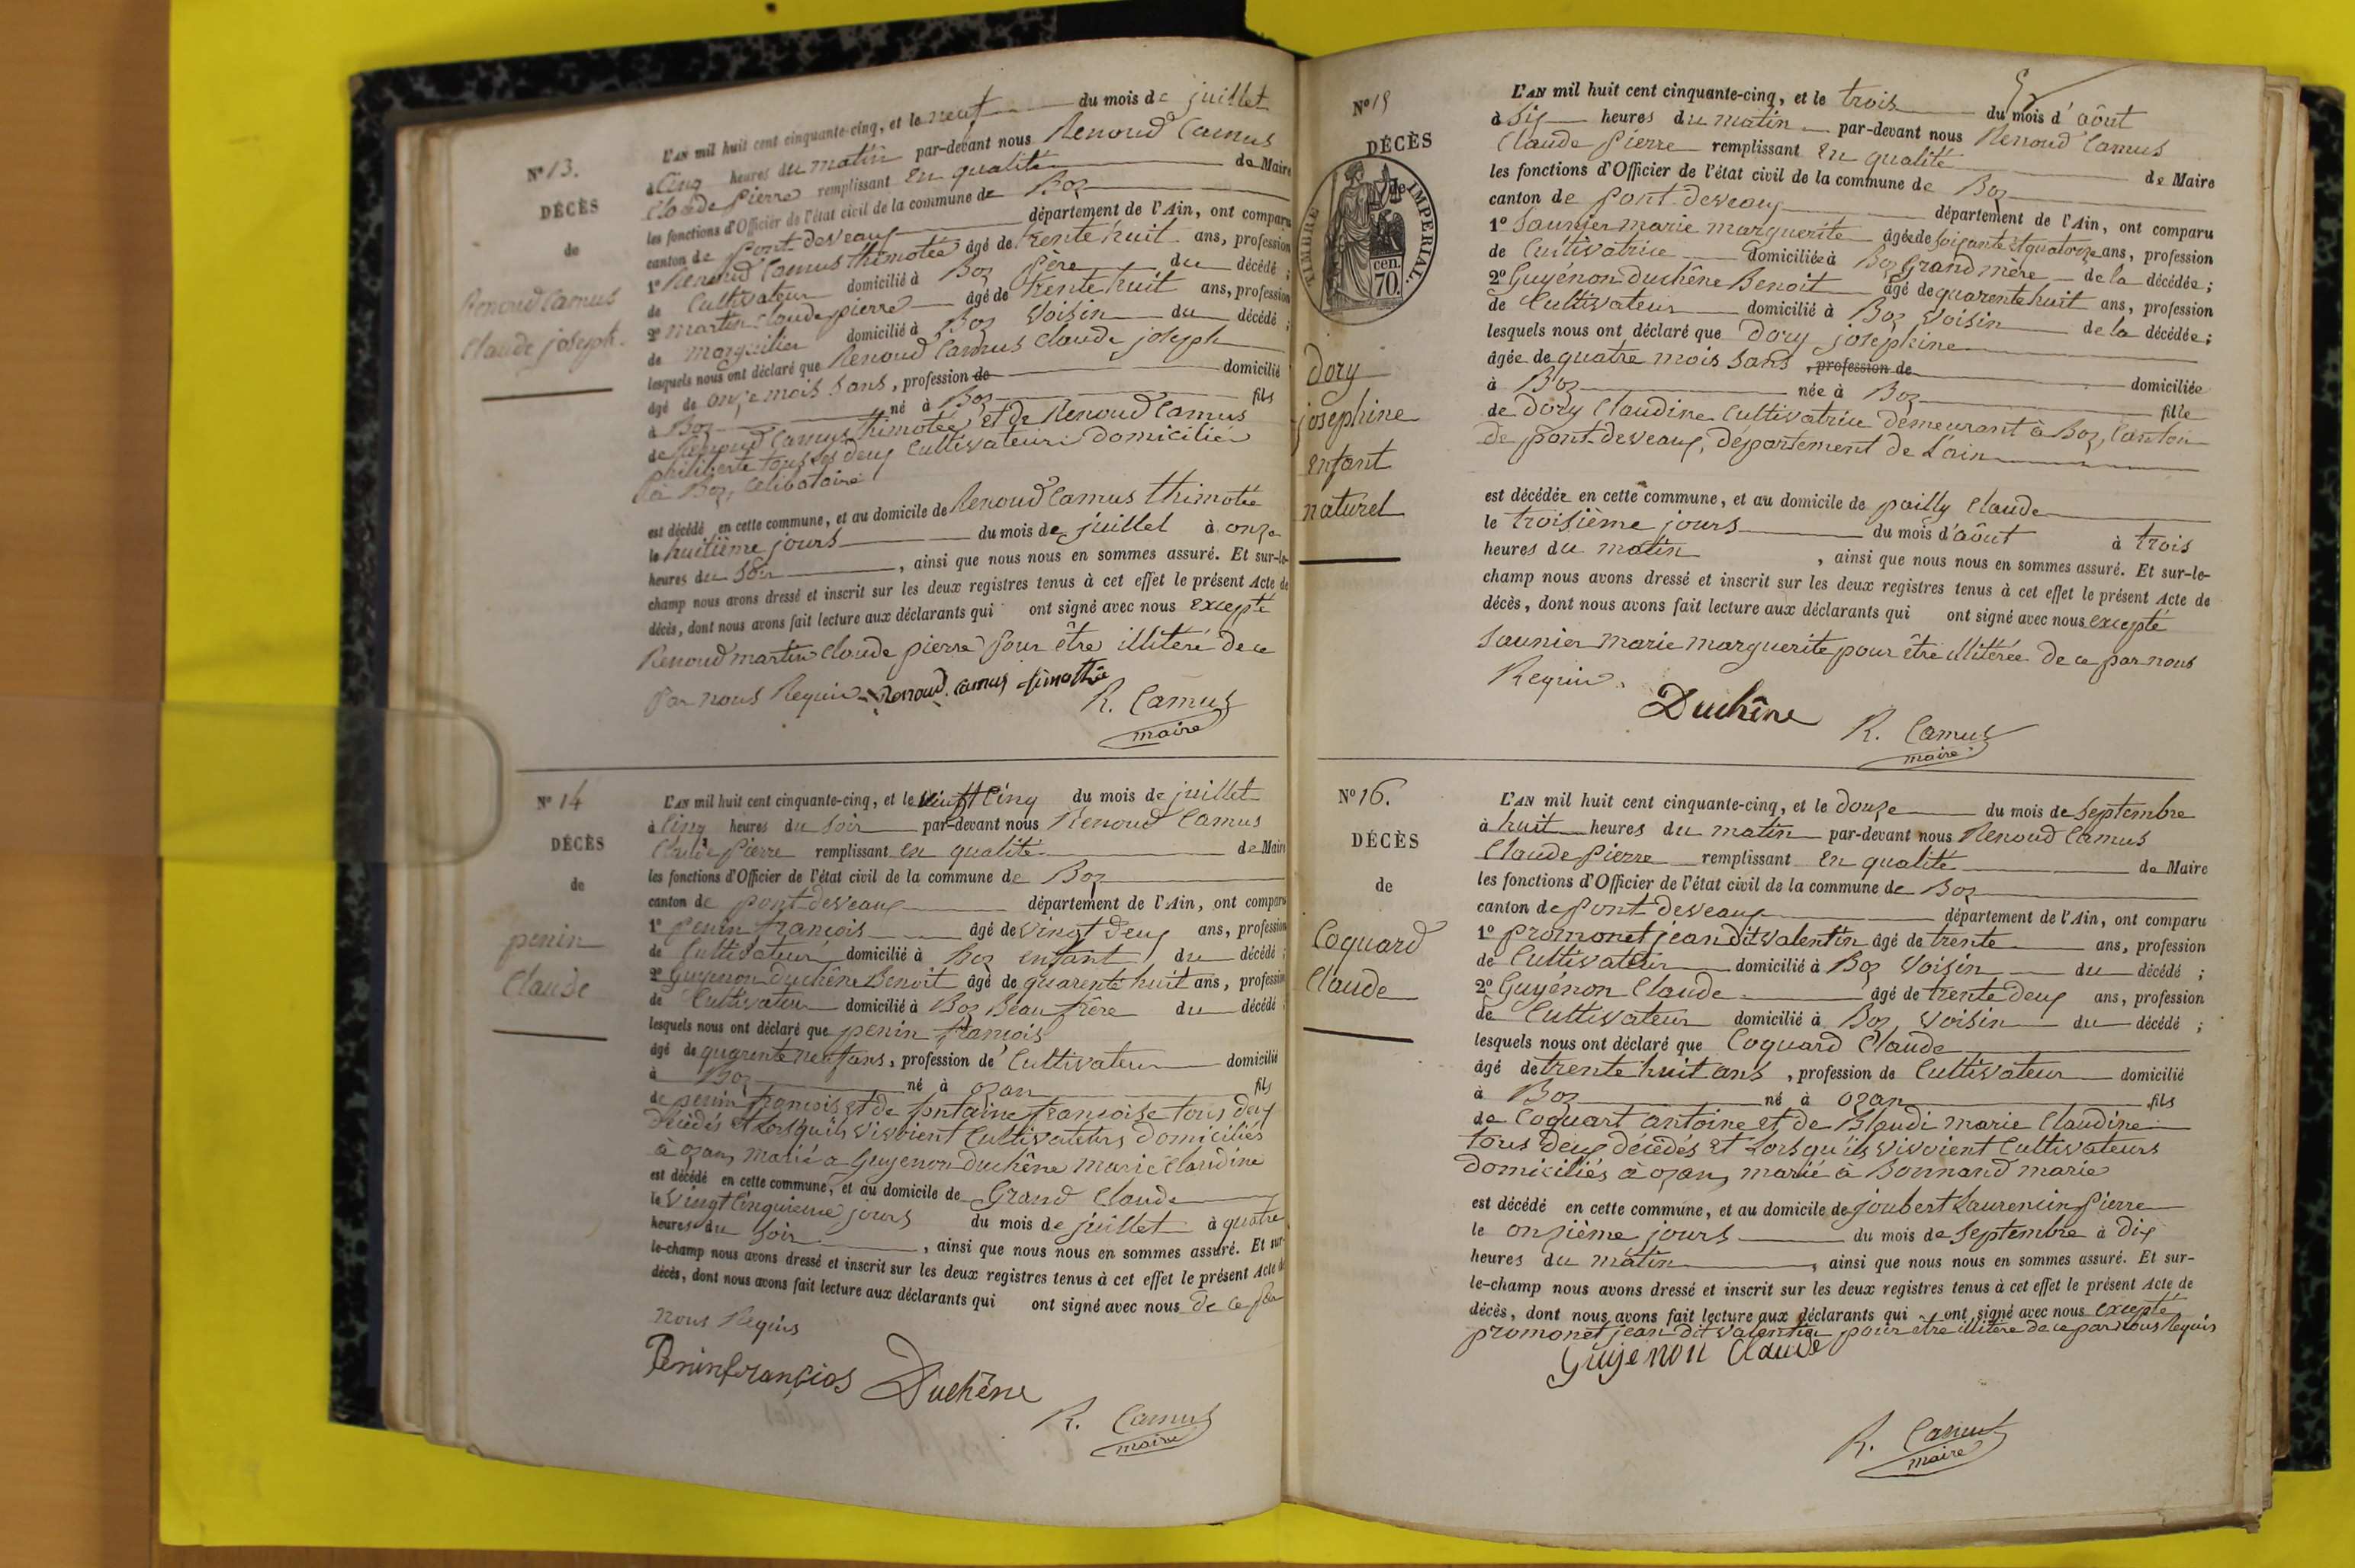 N° 13.
DÉCÈS
de
Renoud Camus
Claude joseph.
L'AN mil huit cent cinquante-cinq, et le neuf du mois de juillet
à Cinq heures du matin par-devant nous Renoud Camus
Claude Pierre remplissant en qualité de Maire
les fonctions d'Officier de l'état civil de la commune de Boz
canton de pont-deveaux département de l'Ain, ont comparu
1° Renoud Camus thimotée âgé de trente huit ans, profession
de Cultivateur domicilié à Boz Père du décédé ;
2° martin Claude pierre âgé de trente huit ans, profession
de marguilier domicilié à Boz Voisin du décédé ;
lesquels nous ont déclaré que Renoud Camus Claude joseph
âgé de onze mois sans, profession de domicilié
à Boz né à Boz fils
de Renoud Camus thimotée et de Renoud Camus
philiberte tous les deux Cultivateurs domiciliés
à Boz, Célibataire
est décédé en cette commune, et au domicile de Renoud Camus thimotée
le huitième jours du mois de juillet à onze
heures du soir , ainsi que nous nous en sommes assuré. Et sur-le-
champ nous avons dressé et inscrit sur les deux registres tenus à cet effet le présent Acte de
décès, dont nous avons fait lecture aux déclarants qui ont signé avec nous excepté
Renoud martin Claude pierre pour être illitéré de ce
par nous Requis Renoud camus timothée
R. Camus
maire
N° 14
DÉCÈS
de
penin
Claude
L'AN mil huit cent cinquante-cinq, et le vingt Cinq du mois de juillet
à Cinq heures du soir par-devant nous Renoud Camus
Claude Pierre remplissant en qualité de Maire
les fonctions d'Officier de l'état civil de la commune de Boz
canton de pont-deveaux département de l'Ain, ont comparu
1° penin françois âgé de vingt deux ans, profession
de Cultivateur domicilié à Boz enfant du décédé ;
2° Guyenon Duchêne Benoit âgé de quarente huit ans, profession
de Cultivateur domicilié à Boz Beau frère du décédé ;
lesquels nous ont déclaré que penin françois
âgé de quarente neuf ans, profession de Cultivateur domicilié
à Boz né à ozan fils
de penin françois et de fontaine françoise tous deux
décédés et Lorsqu'ils vivoient Cultivateurs domiciliés
à ozan, marié a Guyenon Duchêne marie Claudine
est décédé en cette commune, et au domicile de Grand Claude
le vingt Cinquieme jours du mois de juillet à quatre
heures du soir , ainsi que nous nous en sommes assuré. Et sur-
le-champ nous avons dressé et inscrit sur les deux registres tenus à cet effet le présent Acte de
décès, dont nous avons fait lecture aux déclarants qui ont signé avec nous de ce par
nous Requis
Penin françios Duchêne
R. Camus
maire
N° 15
DÉCÈS
de
TIMBRE IMPERIAL.
70 cen.
Dory
josephine
enfant
naturel
L'AN mil huit cent cinquante-cinq, et le trois du mois d'aôut
à Six heures du matin par-devant nous Renoud Camus
Claude Pierre remplissant en qualité de Maire
les fonctions d'Officier de l'état civil de la commune de Boz
canton de pont-deveaux département de l'Ain, ont comparu
1° Saunier marie marguerite âgée de soixante et quatorze ans, profession
de Cultivatrice domiciliée à Boz Grand mère de la décédée ;
2° Guyenon Duchêne Benoit âgé de quarente huit ans, profession
de Cultivateur domicilié à Boz Voisin de la décédée ;
lesquels nous ont déclaré que Dory josephine
âgée de quatre mois sans , profession de domiciliée
à Boz née à Boz fille
de Dory Claudine Cultivatrice demeurant à Boz, Canton
de pont-deveaux, département de L'ain
est décédée en cette commune, et au domicile de pailly Claude
le troisième jours du mois d'aôut à trois
heures du matin , ainsi que nous nous en sommes assuré. Et sur-le-
champ nous avons dressé et inscrit sur les deux registres tenus à cet effet le présent Acte de
décès, dont nous avons fait lecture aux déclarants qui ont signé avec nous excepté
Saunier marie marguerite pour être illitérée de ce par nous
Requis.
Duchêne R. Camus
maire
N° 16.
DÉCÈS
de
Coquard
Claude
L'AN mil huit cent cinquante-cinq, et le douze du mois de Septembre
à huit heures du matin par-devant nous Renoud Camus
Claude Pierre remplissant en qualité de Maire
les fonctions d'Officier de l'état civil de la commune de Boz
canton de Pont-deveaux département de l'Ain, ont comparu
1° promonet jean dit valentin âgé de trente ans, profession
de Cultivateur domicilié à Boz Voisin du décédé ;
2° Guyénon Claude âgé de trente deux ans, profession
de Cultivateur domicilié à Boz, Voisin du décédé ;
lesquels nous ont déclaré que Coquard Claude
âgé de trente huit ans , profession de Cultivateur domicilié
à Boz né à ozan fils
de Coquart antoine et de Blaudi marie Claudine
tous deux décédés et Lorsqu'ils vivoient Cultivateurs
domiciliés à ozan, marié à Bonnand marie
est décédé en cette commune, et au domicile de joubert Laurencin Pierre
le onzième jours du mois de Septembre à Dix
heures du matin , ainsi que nous nous en sommes assuré. Et sur-
le-champ nous avons dressé et inscrit sur les deux registres tenus à cet effet le présent Acte de
décès, dont nous avons fait lecture aux déclarants qui ont signé avec nous excepté
promonet jean dit valentin pour être illitéré de ce par nous Requis
Guyenon Claude
R. Camus
maire